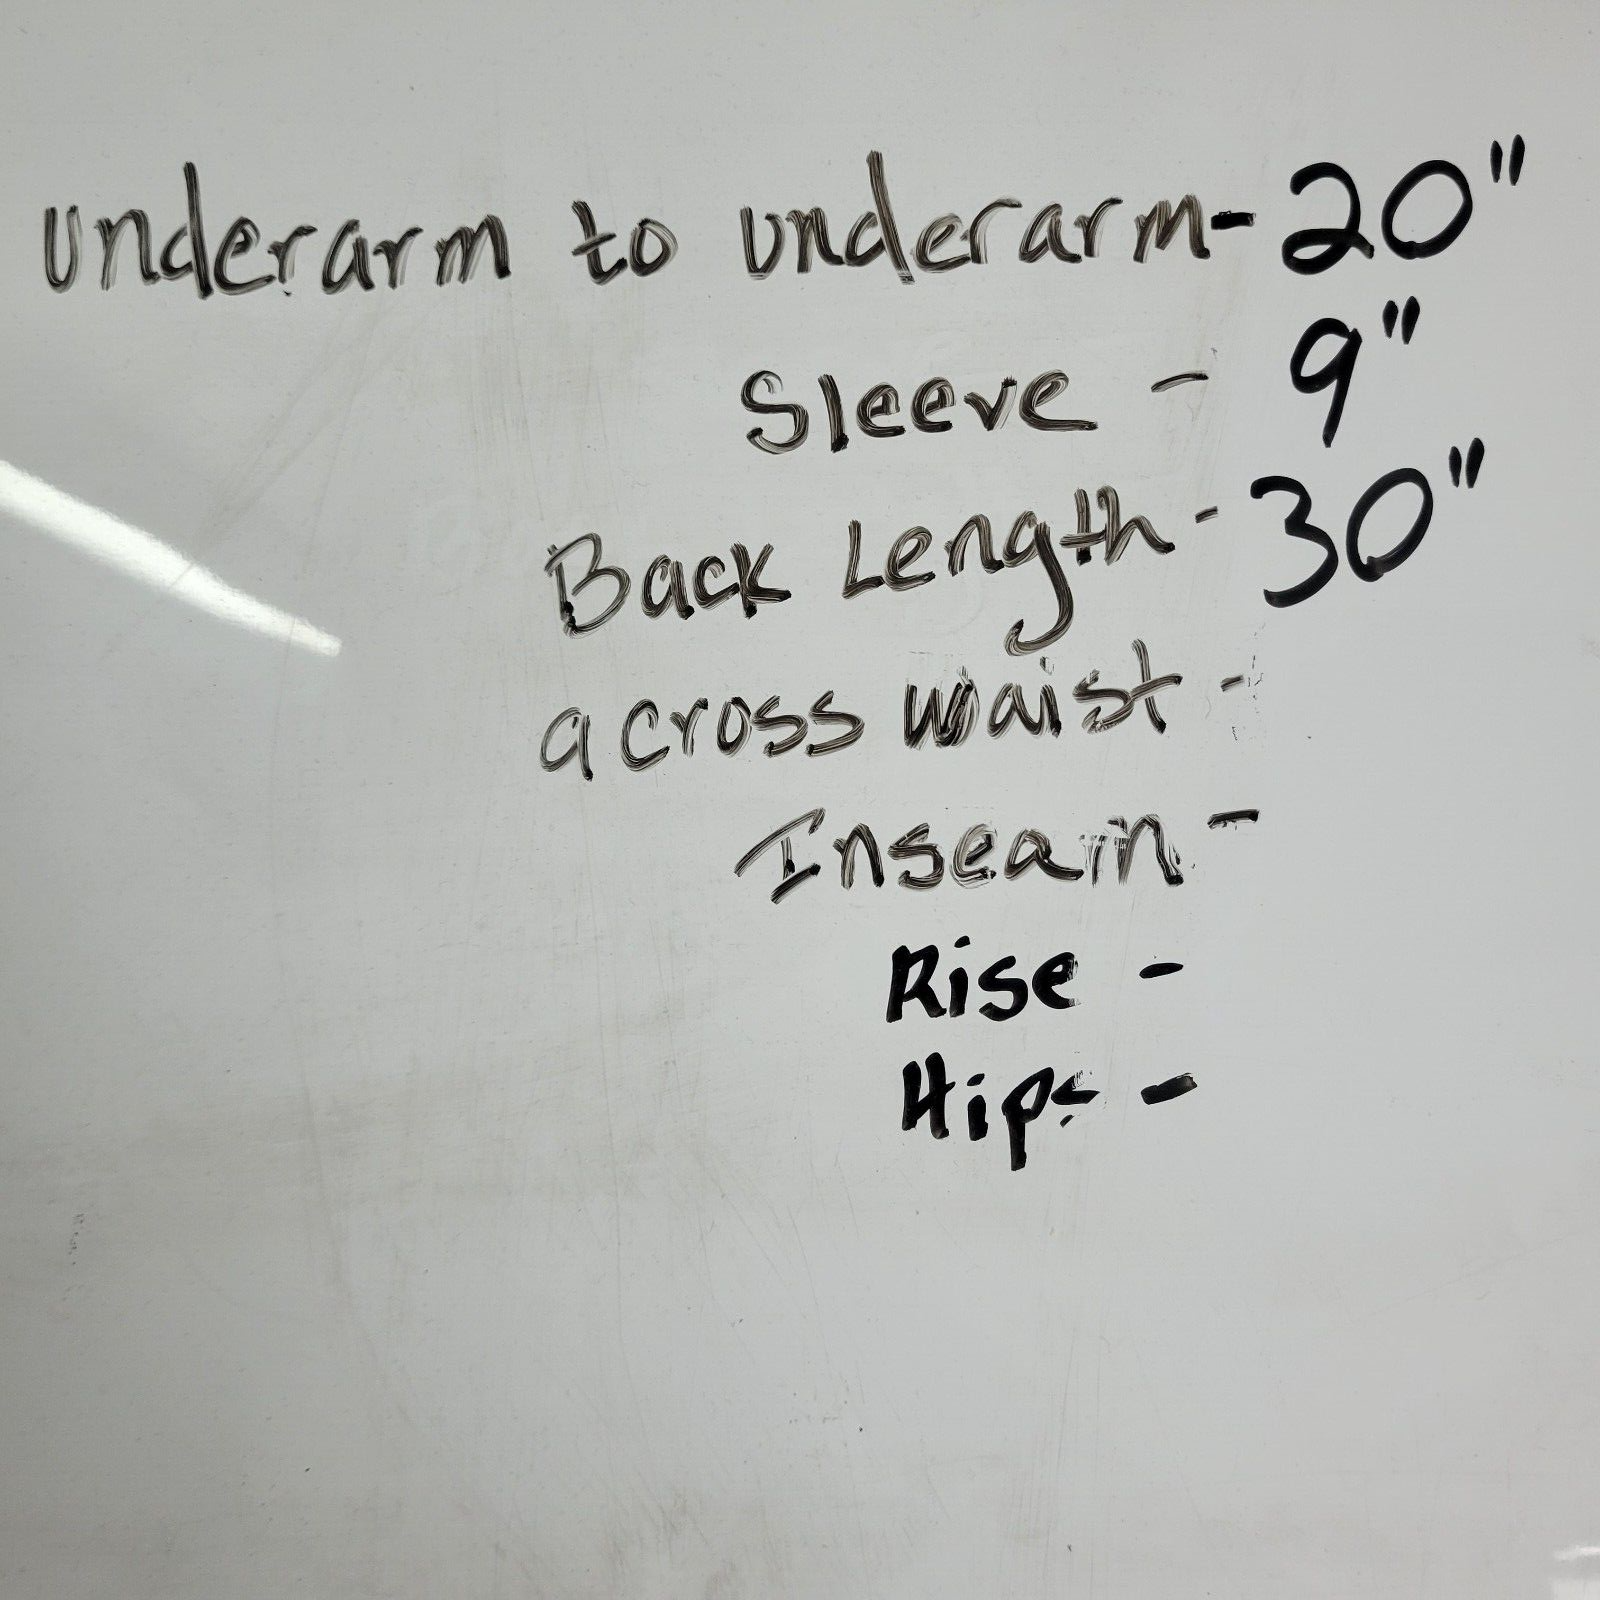 underarm to underarm- 20"
Sleeve - 9"
Back Length - 30"
across waist -
Inseam -
Rise -
Hips -